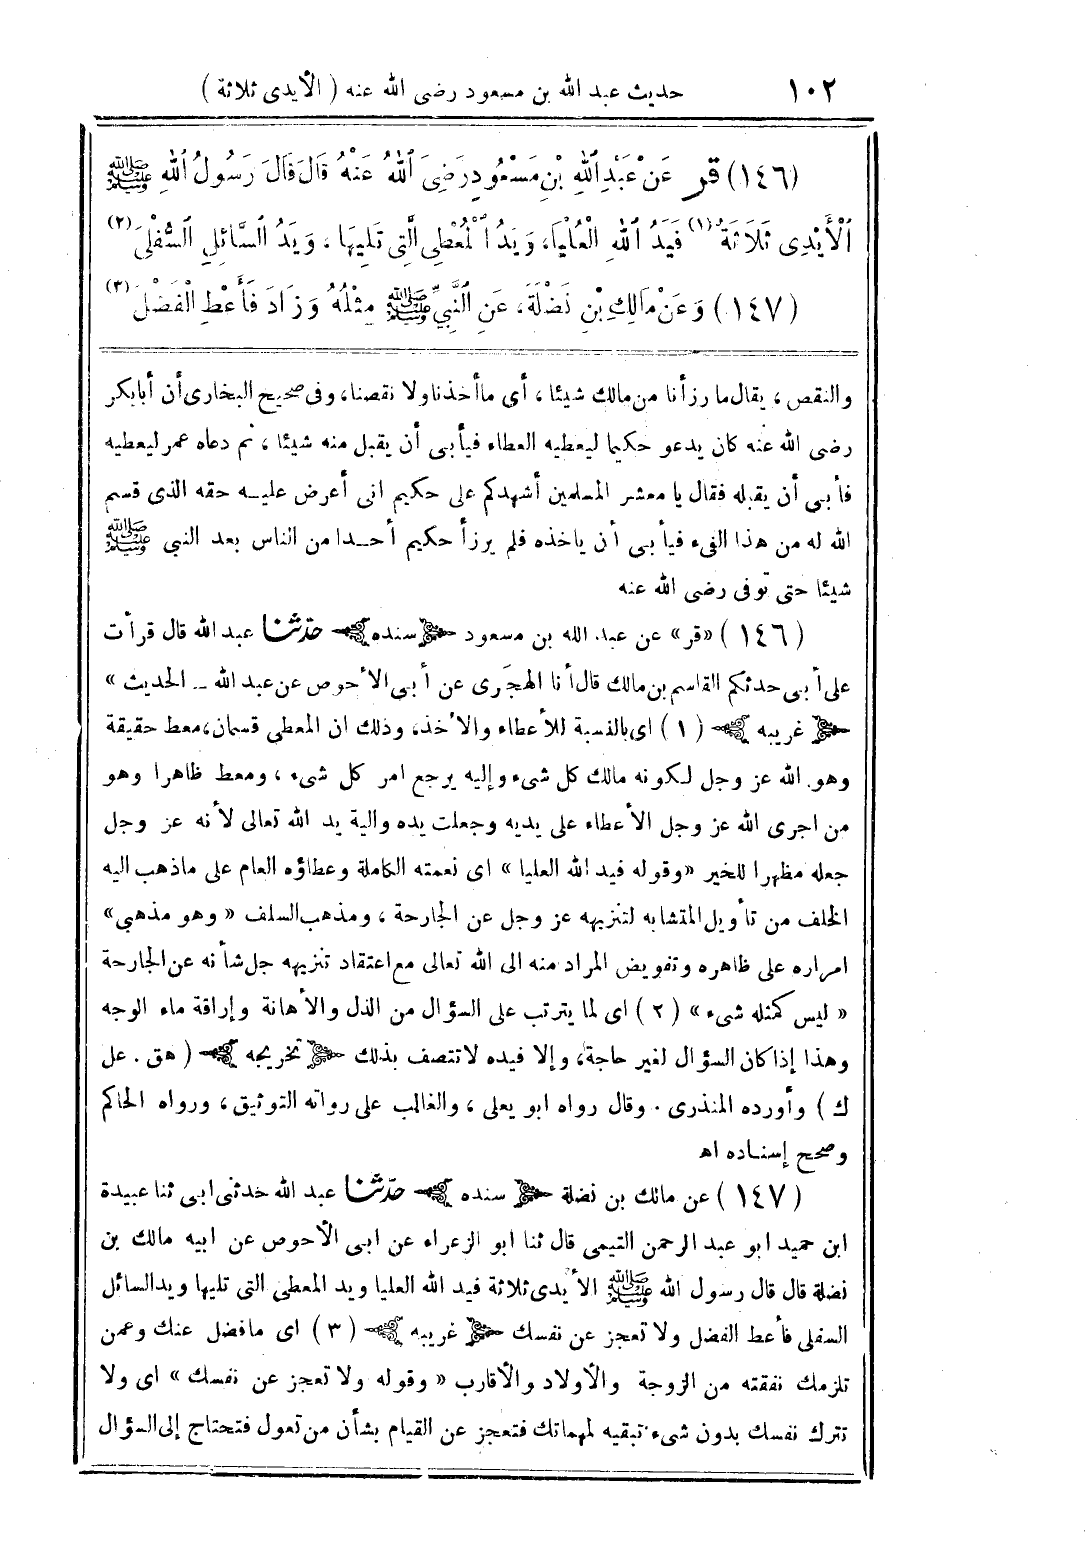 ١٠٢ حديث عبد الله بن مسعود رضى الله عنه ( الأيدى ثلاثة )
(١٤٦) قر عَنْ عَبْدِ اللهِ بْنِ مَسْعُودٍ رَضِىَ اللهُ عَنْهُ قَالَ قَالَ رَسُولُ اللهِ ﷺ
اَلْأَيْدِى ثَلَاثَةٌ (١) فَيَدُ اللهِ الْعُلْيَا، وَيَدُ الْمُعْطِى الَّتِى تَلِيهَا، وَيَدُ السَّائِلِ السُّفْلَى (٢)
(١٤٧) وَعَنْ مَالِكِ بْنِ نَضْلَةَ، عَنِ النَّبِىِّ ﷺ مِثْلُهُ وَزَادَ فَأَعْطِ الْفَضْلَ (٣)
والنقص، يقال ما رزأنا من مالك شيئا، أى ما أخذنا ولا نقصنا، وفى صحيح البخارى أن أبا بكر
رضى الله عنه كان يدعو حكيما ليعطيه العطاء فيأبى أن يقبل منه شيئا، ثم دعاه عمر ليعطيه
فأبى أن يقبله فقال يا معشر المسلمين أشهدكم على حكيم انى أعرض عليـه حقه الذى قسم
الله له من هذا الفىء فيأبى أن ياخذه فلم يرزأ حكيم أحـدا من الناس بعد النبي ﷺ
شيئا حتى توفى رضى الله عنه
( ١٤٦ ) «قر» عن عبد الله بن مسعود سنده حدّثنا عبد الله قال قرأت
على أبى حدثكم القاسم بن مالك قال أنا الهجَرى عن أبى الأحوص عن عبد الله ــ الحديث »
غريبه ( ١ ) اى بالنسبة للأعطاء والأخذ، وذلك ان المعطى قسمان، معط حقيقة
وهو الله عز وجل لكونه مالك كل شىء وإليه يرجع امر كل شىء، ومعط ظاهرا وهو
من اجرى الله عز وجل الأعطاء على يديه وجعلت يده والية يد الله تعالى لأنه عز وجل
جعله مظهرا للخير «وقوله فيد الله العليا» اى نعمته الكاملة وعطاؤه العام على ماذهب اليه
الخلف من تأويل المتشابه لتنزيهه عز وجل عن الجارحة، ومذهب السلف « وهو مذهبي»
امراره على ظاهره وتفويض المراد منه الى الله تعالى مع اعتقاد تنزيهه جل شأنه عن الجارحة
« ليس كمثله شىء » ( ٢ ) اى لما يترتب على السؤال من الذل والأهانة وإراقة ماء الوجه
وهذا إذا كان السؤال لغير حاجة، وإلا فيده لا تتصف بذلك تخريجه ( هق . عل
ك ) وأورده المنذرى . وقال رواه ابو يعلى، والغالب على رواته التوثيق، ورواه الحاكم
وصحح إسنـاده اه
( ١٤٧ ) عن مالك بن نضلة سنده حدّثنا عبد الله حدثنى ابى ثنا عبيدة
ابن حميد ابو عبد الرحمن التيمى قال ثنا ابو الزعراء عن ابى الأحوص عن ابيه مالك بن
نضلة قال قال رسول الله ﷺ الأيدى ثلاثة فيد الله العليا ويد المعطى التى تليها ويد السائل
السفلى فأعط الفضل ولا تعجز عن نفسك غريبه ( ٣ ) اى مافضل عنك وعمن
تلزمك نفقته من الزوجة والأولاد والأقارب « وقوله ولا تعجز عن نفسك » اى ولا
تترك نفسك بدون شىء تبقيه لمهماتك فتعجز عن القيام بشأن من تعول فتحتاج إلى السؤال